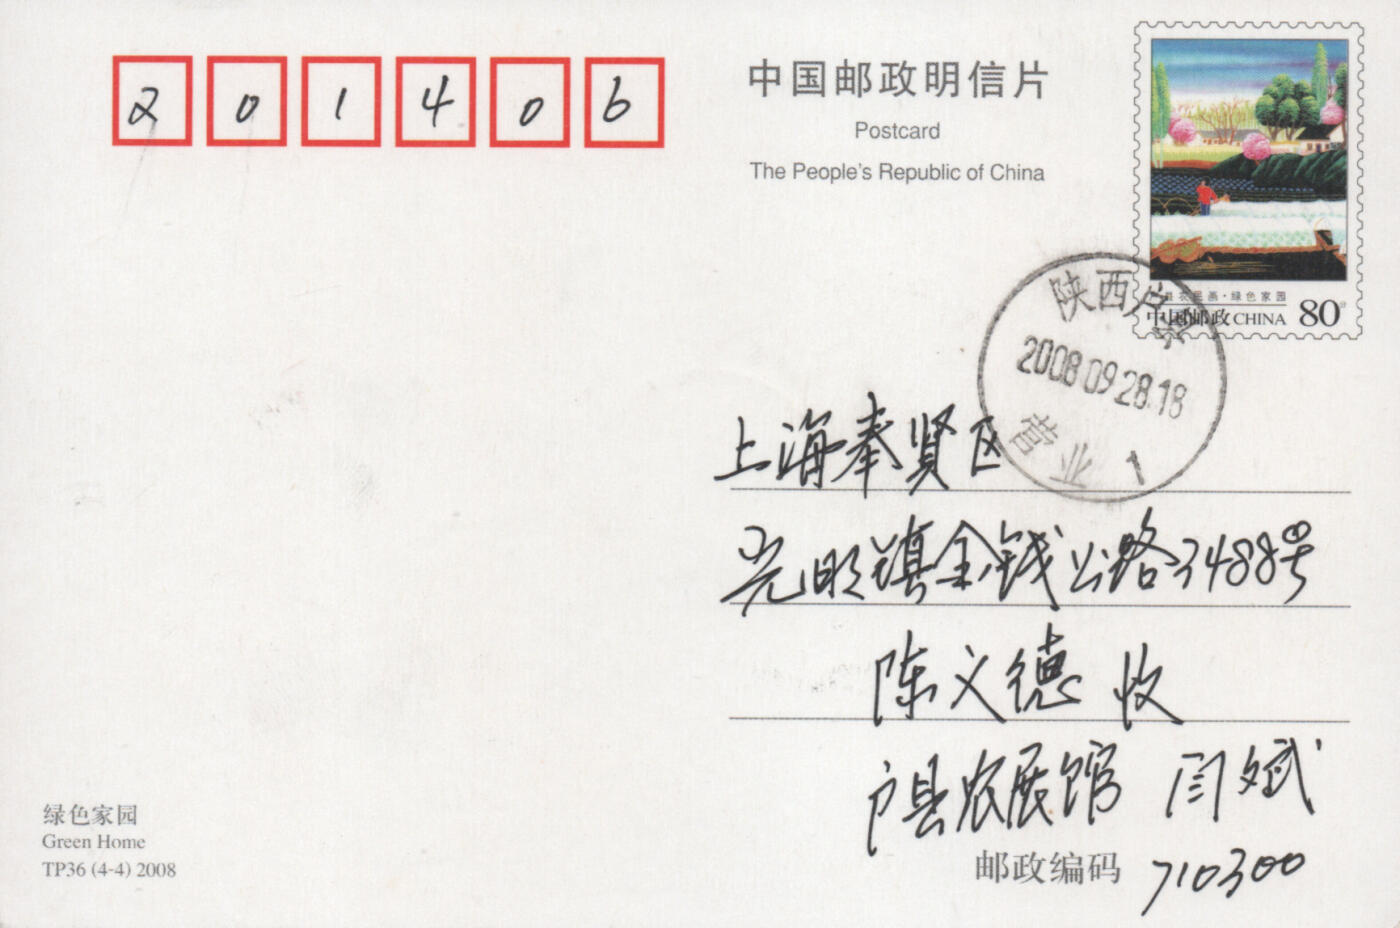 201406
中国邮政明信片
Postcard
The People's Republic of China
户县农民画·绿色家园
中国邮政 CHINA 80分
陕西户县
2008.09.28.18
营业 1
上海奉贤区
光明镇金钱公路3488号
陈义德 收
户县农展馆 闫斌
邮政编码 710300
绿色家园
Green Home
TP36 (4-4) 2008